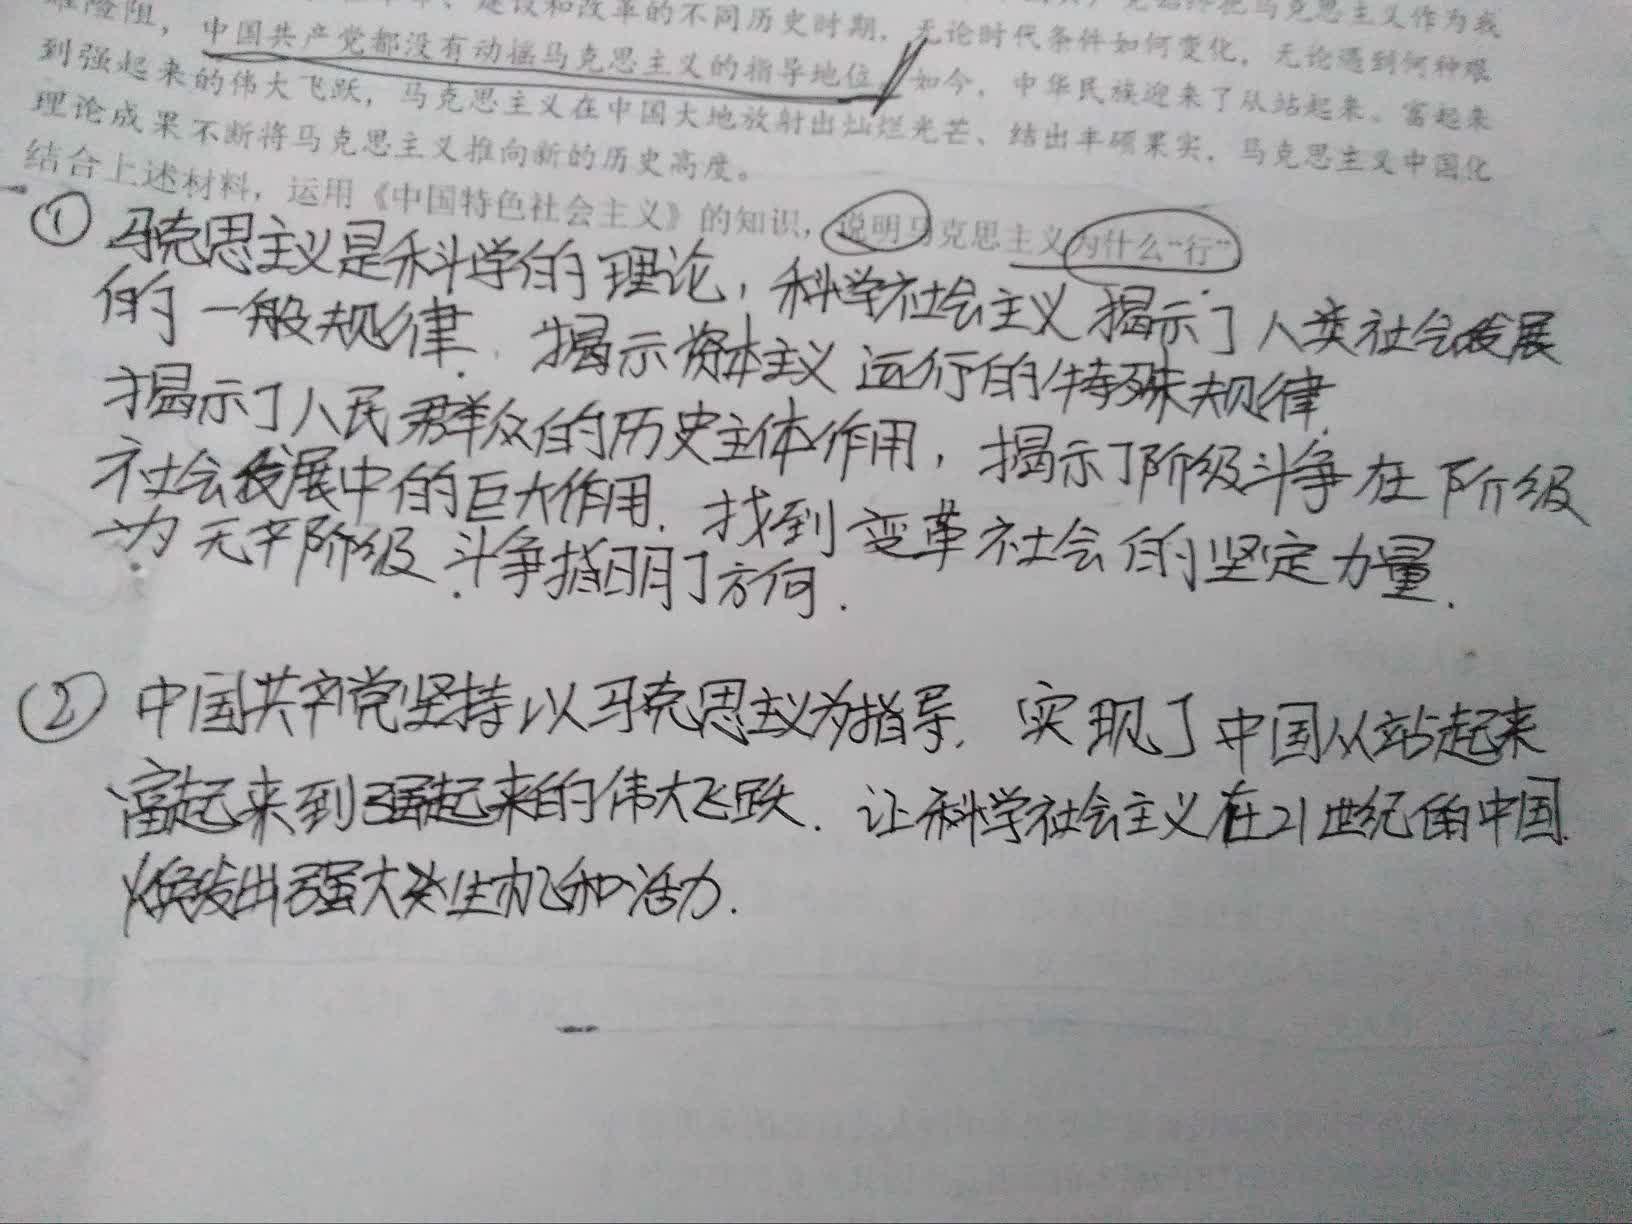 建设和改革的不同历史时期，无论时代条件如何变化，无论遇到何种艰
难险阻，中国共产党都没有动摇马克思主义的指导地位。如今，中华民族迎来了从站起来、富起来
到强起来的伟大飞跃，马克思主义在中国大地放射出灿烂光芒、结出丰硕果实，马克思主义中国化
理论成果不断将马克思主义推向新的历史高度。
结合上述材料，运用《中国特色社会主义》的知识，说明马克思主义为什么“行”
① 马克思主义是科学的理论，科学社会主义揭示了人类社会发展
的一般规律、揭示资本主义运行的特殊规律.
揭示了人民群众的历史主体作用，揭示了阶级斗争在阶级
社会发展中的巨大作用. 找到变革社会的坚定力量.
为无产阶级斗争指明了方向.
② 中国共产党坚持以马克思主义为指导, 实现了中国从站起来
富起来到强起来的伟大飞跃. 让科学社会主义在21世纪的中国
焕发出强大生机和活力.